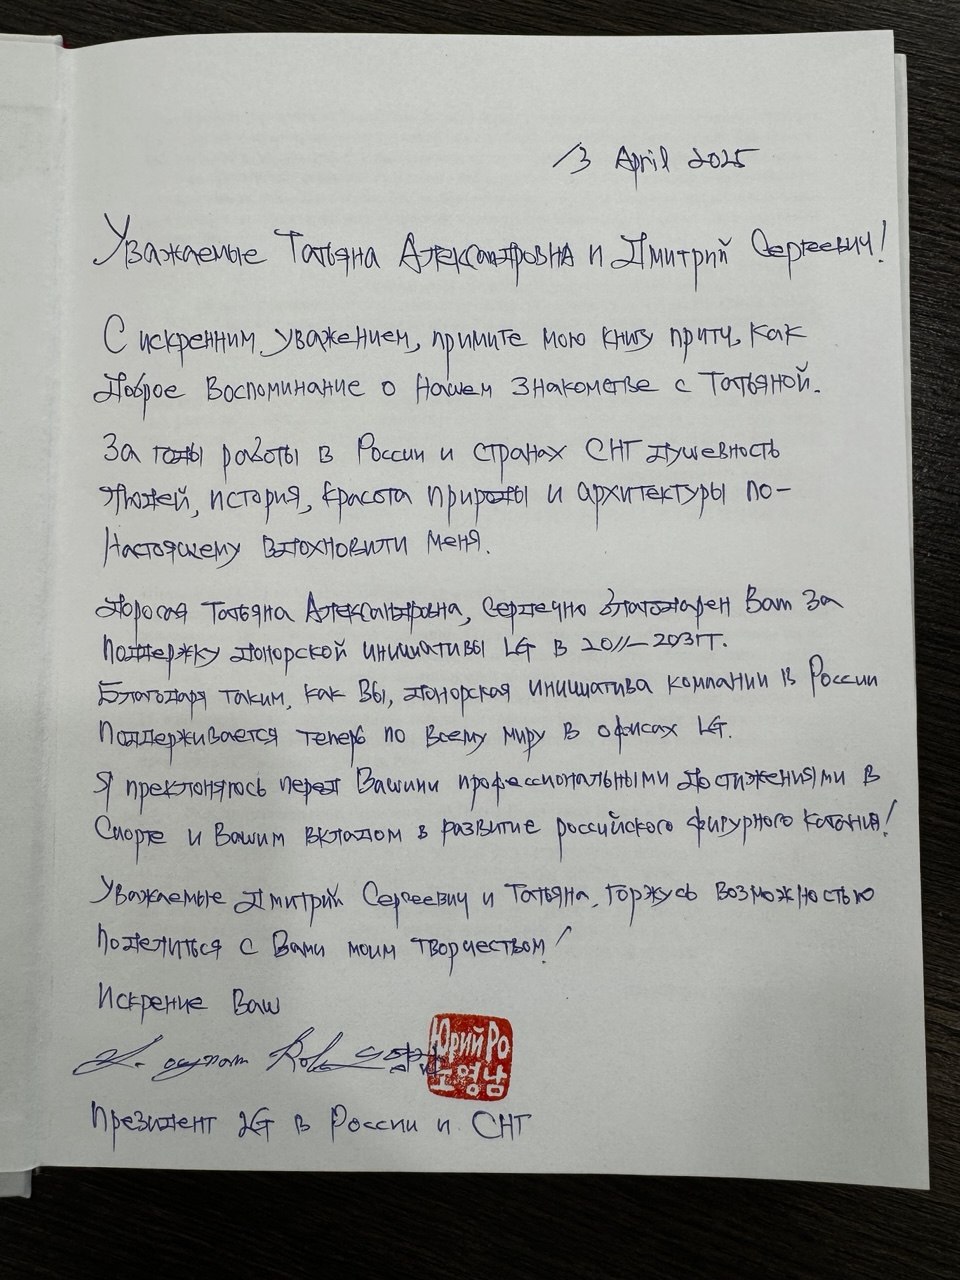 13 April 2025
Уважаемые Татьяна Александровна и Дмитрий Сергеевич!
С искренним уважением, примите мою книгу притч, как
доброе воспоминание о нашем знакомстве с Татьяной.
За годы работы в России и странах СНГ душевность
людей, история, красота природы и архитектуры по-
настоящему вдохновили меня.
Дорогая Татьяна Александровна, сердечно благодарен Вам за
поддержку донорской инициативы LG в 2011-2031г.
Благодаря таким, как Вы, донорская инициатива компании в России
поддерживается теперь по всему миру в офисах LG.
Я преклоняюсь перед Вашими профессиональными достижениями в
спорте и Вашим вкладом в развитие российского фигурного катания!
Уважаемые Дмитрий Сергеевич и Татьяна, горжусь возможностью
поделиться с Вами моим творчеством!
Искрение Ваш
Юрий Ро
노영남
Президент LG в России и СНГ